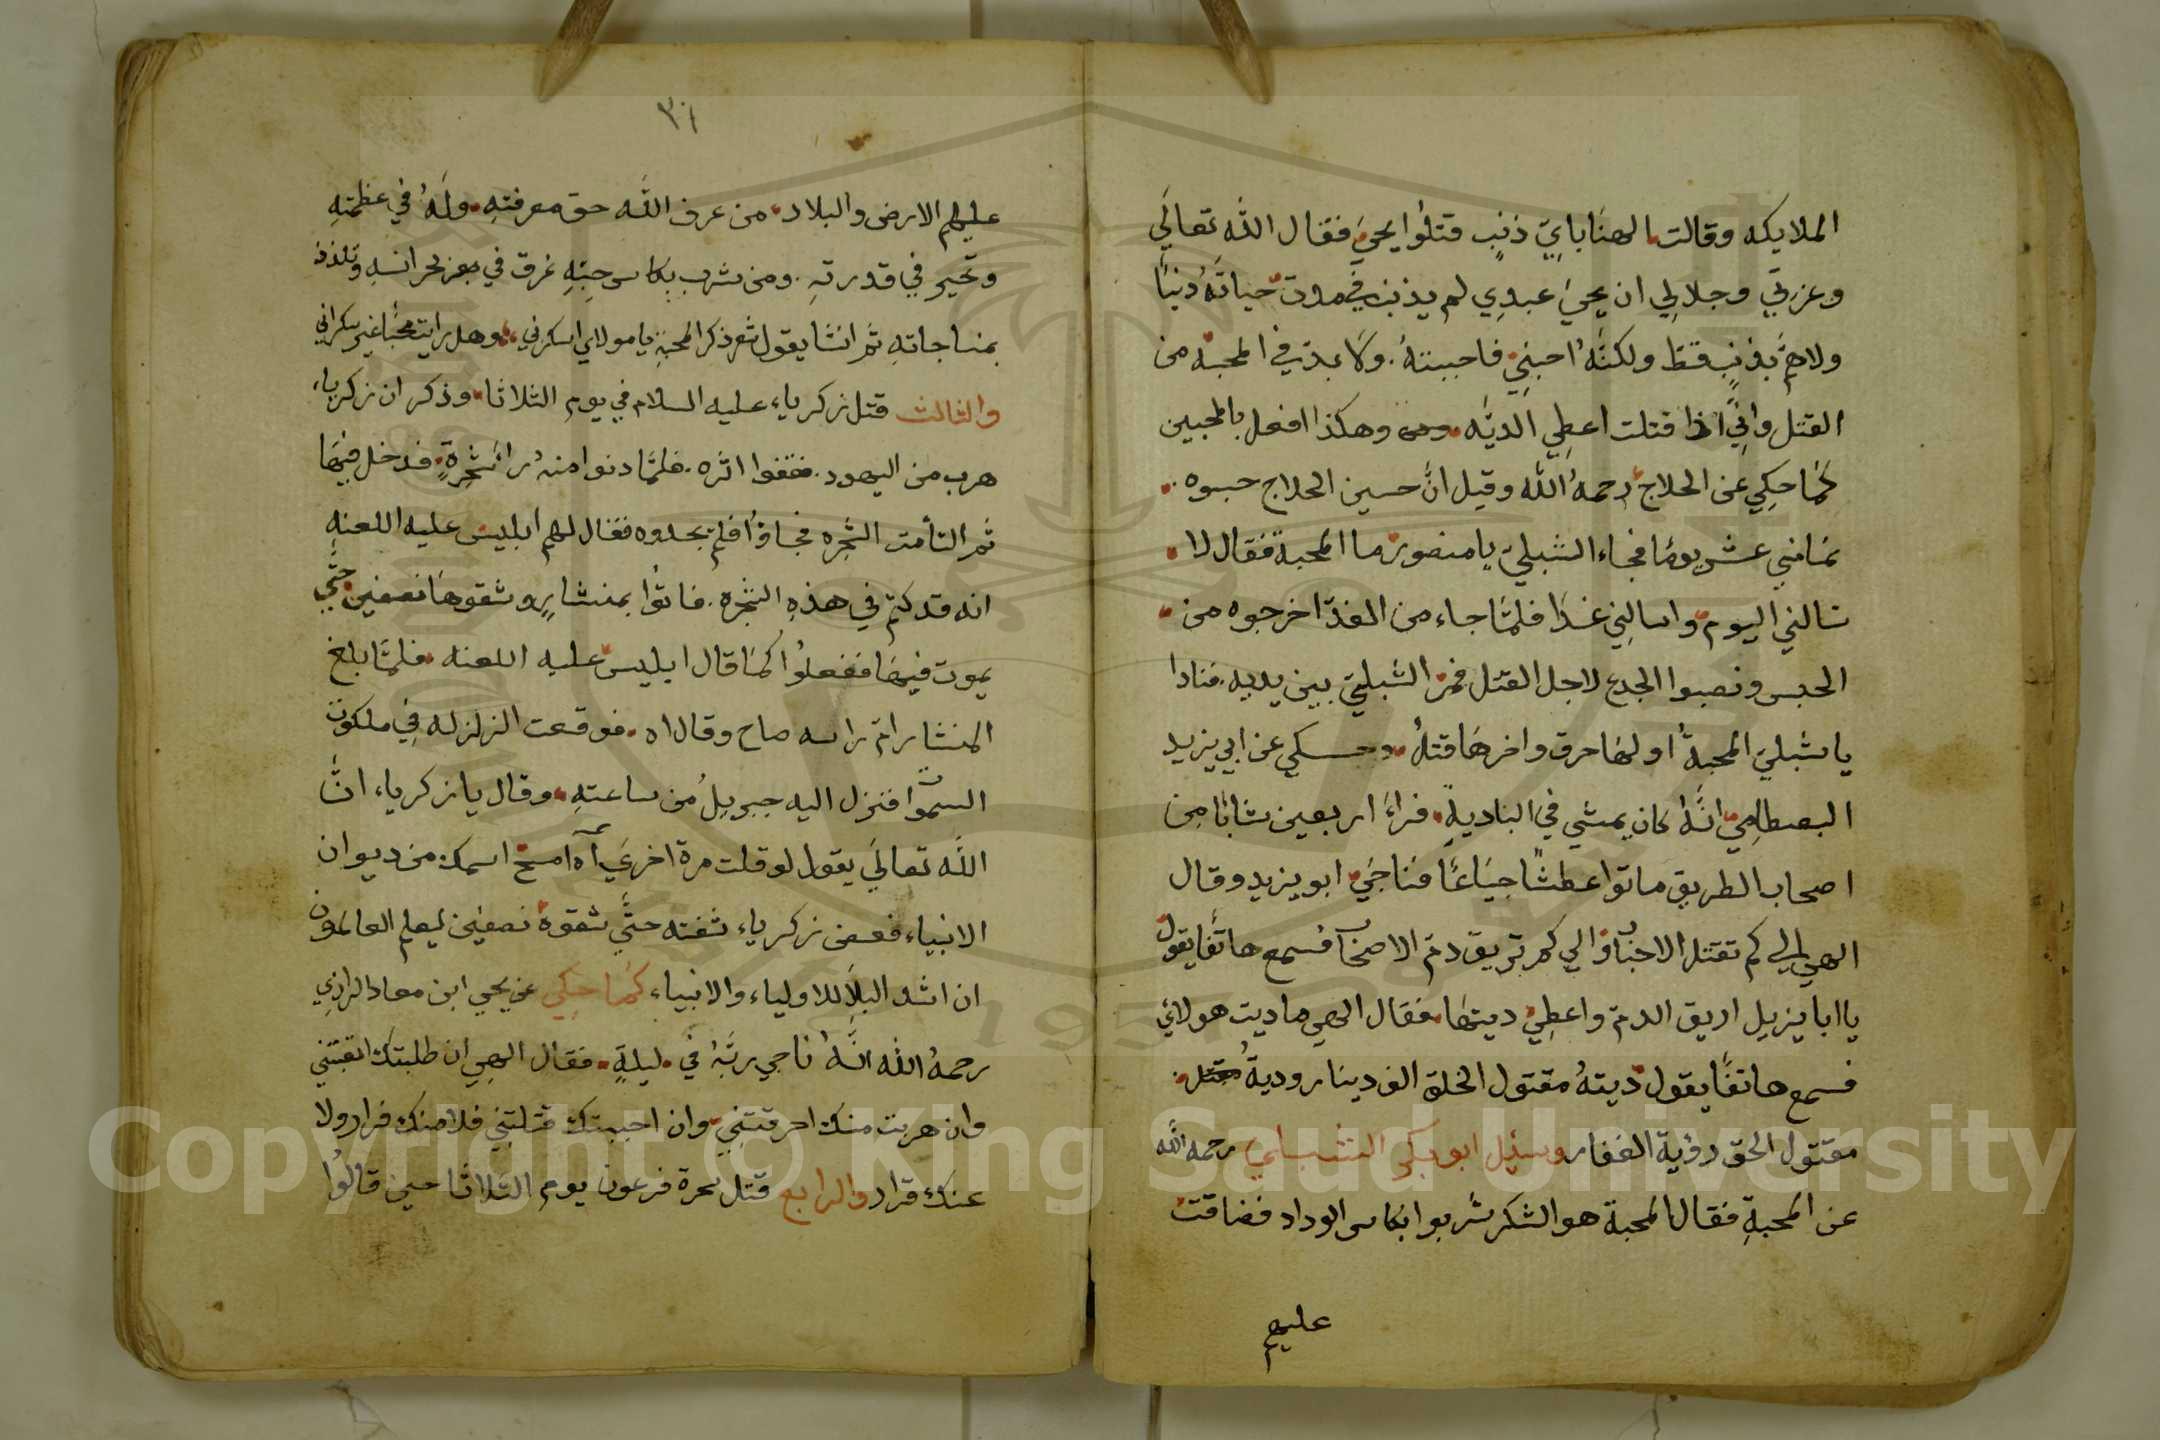 الملايكه وقالت الهنا بايّ ذنبٍ قتلوا يحيى فقال الله تعالى
وعزتي وجلالي ان يحيى عبدي لم يذنب في مدت حياته ذنبًا
ولا همّ بذنبٍ قط ولكنّهُ احبني فاحببتهُ. ولا بدّ في المحبه من
القتل وانيّ اذا قتلت اعطي الديّه وهكذا افعل بالمحبين
كما حكي عن الحلاج رحمهُ الله وقيل انّ حسين الحلاج حبسوه
ثمانيي عشر يومًا فجاء الشبليّ يا منصور ما المحبة فقال لا
تسالني اليوم واسالني غدًا فلمّا جاء من الغدّ اخرجوه من
الحبس ونصبوا الجدع لاجل القتل فمرّ الشبليّ بين يديه. فنادا
يا شبليّ المحبةُ اولها حرق واخرها قتلُ وحكي عن ابي يزيد
البسطاميّ انّهُ كان يمشي في الباديةِ فراءَ اربعين شابًا من
اصحاب الطريق ماتوا عطشًا جياعًا فناجى ابو يزيد وقال
الهي الي كم تقتل الاحباب والي كم تريق دمّ الاصحاب فسمع هاتفًا يقول
يا ابا يزيد اريق الدمّ واعطي ديتها فقال الهي ما ديت هولائي
فسمع هاتفًا يقول ديتهُ مقتول الخلق الف دينار وديةُ
مقتول الحق رؤية الغفار وسئل ابو بكر الشبلي رحمه الله
عن المحبةِ فقال المحبة هو الشكر شربوا بكاس الوداد فضاقت
عليهم
٣١
عليهم الارض والبلاد من عرف الله حق معرفتهِ ولهُ في عظمتهِ
وتحير في قدرتهِ. ومن شرب بكاس حبّهِ غرق في بحر انسهِ وتلذذ
بمناجاتهِ ثم انشا يقول شعر ذكر المحبةِ يا مولاي اسكرني وهل رايت محبًا غير سكراني
والثالث قتل زكرياء عليه السلام في يوم الثلاثا وذكر ان زكرياء
هرب من اليهود. فقفوا اثره. فلمّا دنوا منهُ رائ شجرةٍ فدخل فيها
ثم التأمت الشجره فجاؤا فلم يجدوه فقال لهم ابليس عليه اللعنه
انه قد كتم في هذهِ الشجره. فاتوا بمنشارٍ وشقوها نصفين حتّي
يموت فيها ففعلوا كما قال ابليس عليه اللعنه فلمّا بلغ
المنشار امّ راسه صاح وقال اه فوقعت الزلزله في ملكوت
السموات فنزل اليه جبريلُ من ساعتهِ وقال يا زكرياء انّ
الله تعالى يقول لو قلت مرة اخري آه امسح اسمك من ديوان
الانبياء فعض زكرياء شفته حتّي شقوهُ نصفين ليعلم العالمون
ان اشد البلا للاولياء والانبياء كما حكي عن يحيى ابن معاد الرازي
رحمهُ الله انّهُ ناجي ربّهُ في ليلةٍ فقال الهي ان طلبتك اتعبتني
وان هربت منك احرقتني وان احببتك قتلتني فلا منك فرار ولا
عنك قرار والرابع قتل سحرة فرعون يوم الثلاثا حين قالوا
Copyright © King Saud University
1957